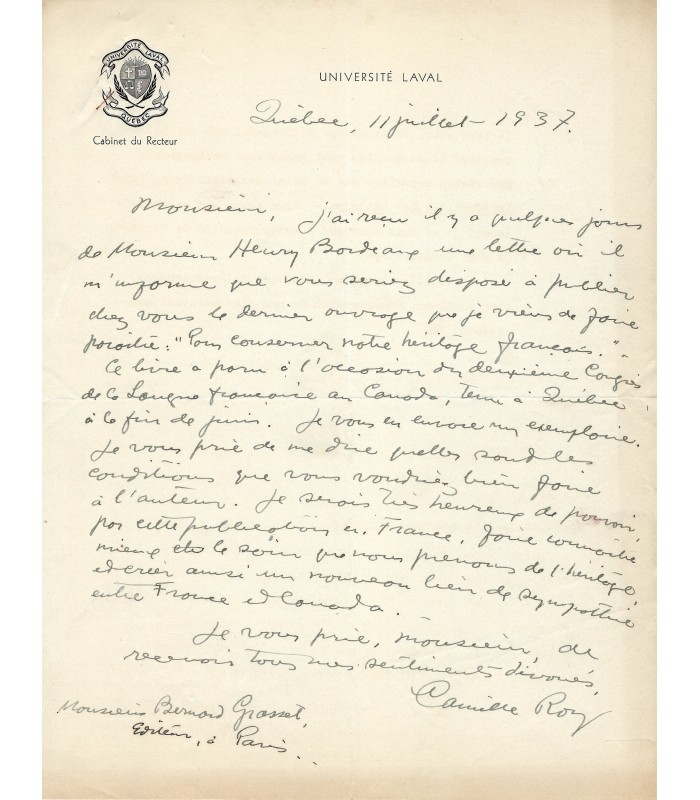 UNIVERSITÉ LAVAL
QUÉBEC
Cabinet du Recteur
UNIVERSITÉ LAVAL
Québec, 11 juillet 1937.
Monsieur, j'ai reçu il y a quelques jours
de Monsieur Henry Bordeaux une lettre où il
m'informe que vous seriez disposé à publier
chez vous le dernier ouvrage que je viens de faire
paraître : "Pour conserver notre héritage français."
Ce livre a paru à l'occasion du deuxième Congrès
de la Langue française au Canada, tenu à Québec
à la fin de juin. Je vous en envoie un exemplaire.
Je vous prie de me dire quelles sont les
conditions que vous voudriez bien faire
à l'auteur. Je serais très heureux de pouvoir,
par cette publication en France, faire connaître
mieux le soin que nous prenons de l'héritage,
et créer ainsi un nouveau lien de sympathie
entre France et Canada.
Je vous prie, Monsieur, de
recevoir tous mes sentiments dévoués,
Camille Roy
Monsieur Bernard Grasset,
Editeur, à Paris.